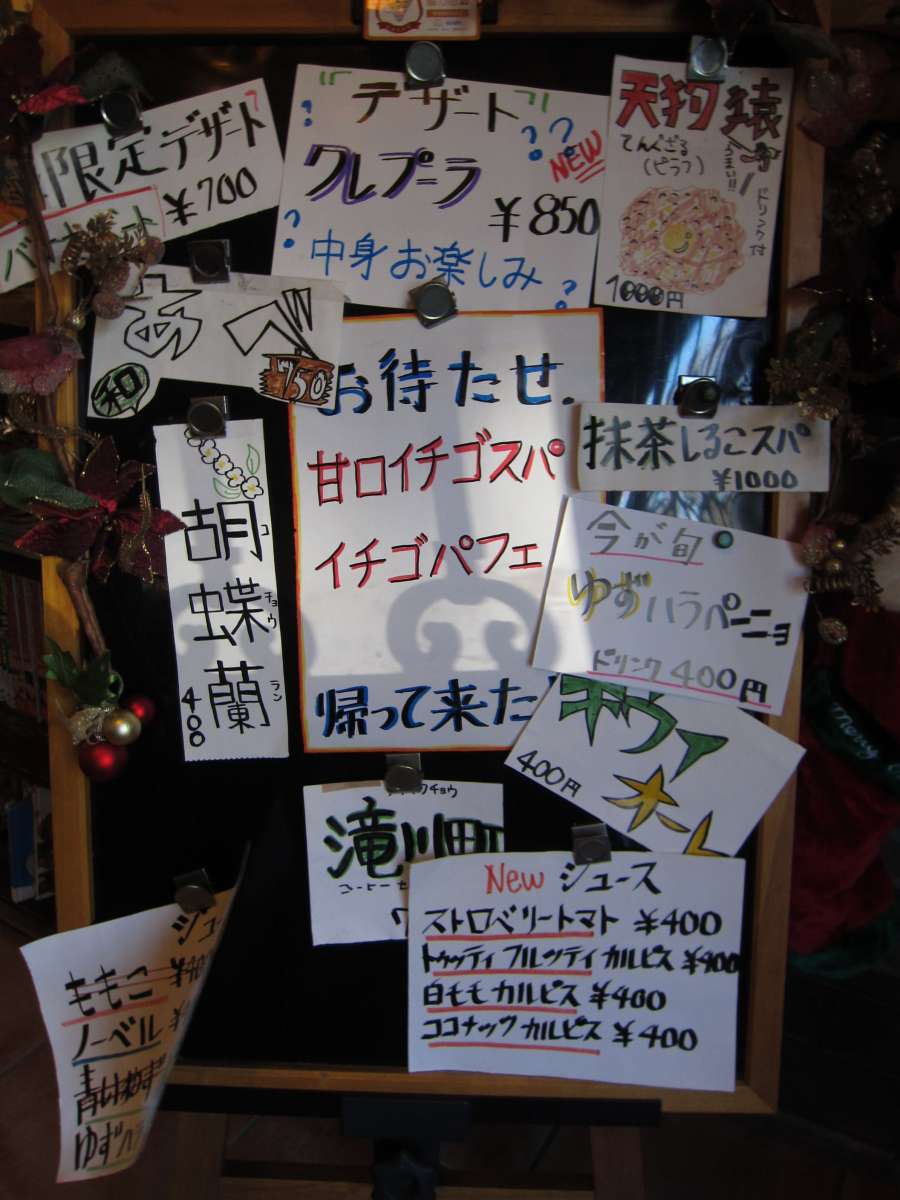 限定デザート
¥700
デザート
クレプーラ
NEW
¥850
中身お楽しみ
天狗猿
てんぐざる
(ピラフ)
うまい!!
ドリンク付
1000円
あべ
和
750
お待たせ.
甘口イチゴスパ
イチゴパフェ
帰って来た
抹茶しるこスパ
¥1000
胡蝶蘭
コ
チョウ
ラン
400
今が旬
ゆずハラペーニョ
ドリンク400円
400円
滝川町
New ジュース
ストロベリートマト ¥400
トゥッティ フルッティ カルピス ¥400
白ももカルピス ¥400
ココナッツカルピス ¥400
ももこ
ノーベル
ゆず
Merry